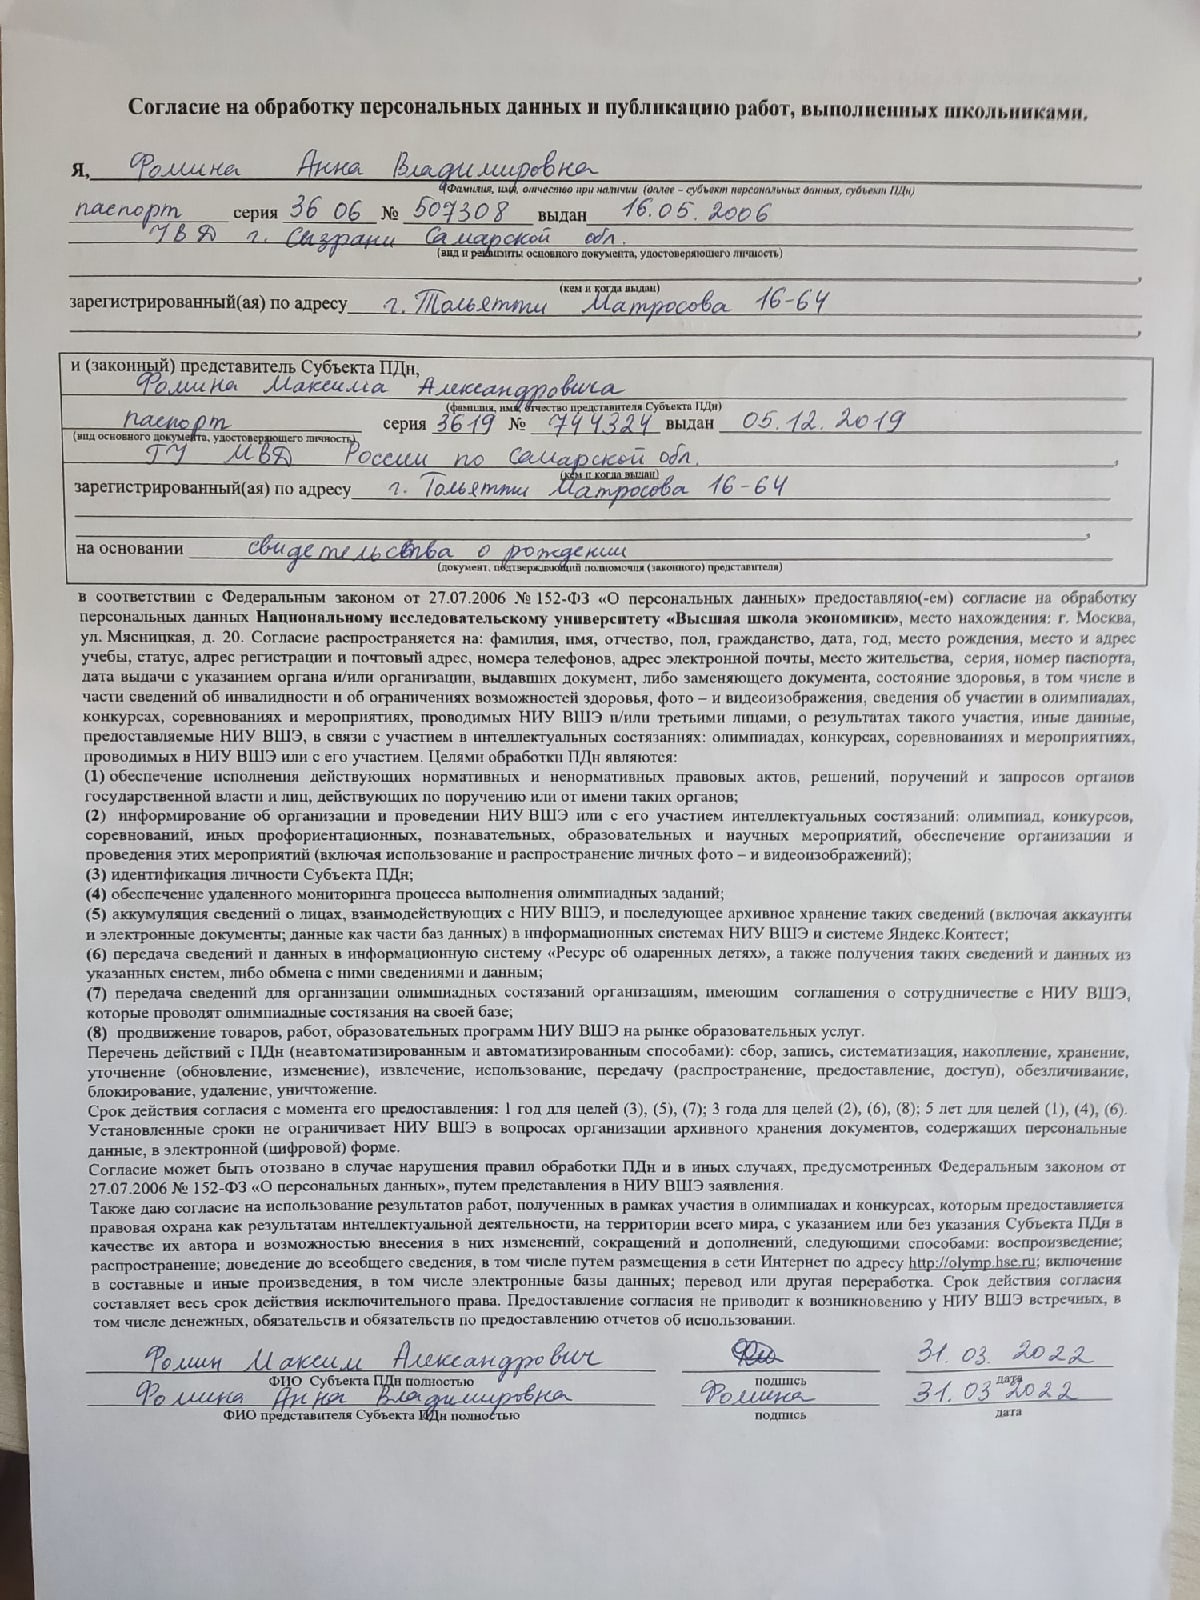 Согласие на обработку персональных данных и публикацию работ, выполненных школьниками.
Я, Фомина Анна Владимировна
(Фамилия, имя, отчество при наличии (далее – субъект персональных данных, субъект ПДн)
паспорт серия 36 06 № 507308 выдан 16.05.2006
УВД г. Сызрани Самарской обл.
(вид и реквизиты основного документа, удостоверяющего личность)
(кем и когда выдан)
зарегистрированный(ая) по адресу г. Тольятти Матросова 16-64
и (законный) представитель Субъекта ПДн,
Фомина Максима Александровича
(фамилия, имя, отчество представителя Субъекта ПДн)
паспорт серия 3619 № 744324 выдан 05.12.2019
(вид основного документа, удостоверяющего личность)
ГУ МВД России по Самарской обл.
(кем и когда выдан)
зарегистрированный(ая) по адресу г. Тольятти Матросова 16-64
на основании свидетельства о рождении
(документ, подтверждающий полномочия (законного) представителя)
в соответствии с Федеральным законом от 27.07.2006 № 152-ФЗ «О персональных данных» предоставляю(-ем) согласие на обработку
персональных данных Национальному исследовательскому университету «Высшая школа экономики», место нахождения: г. Москва,
ул. Мясницкая, д. 20. Согласие распространяется на: фамилия, имя, отчество, пол, гражданство, дата, год, место рождения, место и адрес
учебы, статус, адрес регистрации и почтовый адрес, номера телефонов, адрес электронной почты, место жительства, серия, номер паспорта,
дата выдачи с указанием органа и/или организации, выдавших документ, либо заменяющего документа, состояние здоровья, в том числе в
части сведений об инвалидности и об ограничениях возможностей здоровья, фото – и видеоизображения, сведения об участии в олимпиадах,
конкурсах, соревнованиях и мероприятиях, проводимых НИУ ВШЭ и/или третьими лицами, о результатах такого участия, иные данные,
предоставляемые НИУ ВШЭ, в связи с участием в интеллектуальных состязаниях: олимпиадах, конкурсах, соревнованиях и мероприятиях,
проводимых в НИУ ВШЭ или с его участием. Целями обработки ПДн являются:
(1) обеспечение исполнения действующих нормативных и ненормативных правовых актов, решений, поручений и запросов органов
государственной власти и лиц, действующих по поручению или от имени таких органов;
(2) информирование об организации и проведении НИУ ВШЭ или с его участием интеллектуальных состязаний: олимпиад, конкурсов,
соревнований, иных профориентационных, познавательных, образовательных и научных мероприятий, обеспечение организации и
проведения этих мероприятий (включая использование и распространение личных фото – и видеоизображений);
(3) идентификация личности Субъекта ПДн;
(4) обеспечение удаленного мониторинга процесса выполнения олимпиадных заданий;
(5) аккумуляция сведений о лицах, взаимодействующих с НИУ ВШЭ, и последующее архивное хранение таких сведений (включая аккаунты
и электронные документы; данные как части баз данных) в информационных системах НИУ ВШЭ и системе Яндекс.Контест;
(6) передача сведений и данных в информационную систему «Ресурс об одаренных детях», а также получения таких сведений и данных из
указанных систем, либо обмена с ними сведениями и данным;
(7) передача сведений для организации олимпиадных состязаний организациям, имеющим соглашения о сотрудничестве с НИУ ВШЭ,
которые проводят олимпиадные состязания на своей базе;
(8) продвижение товаров, работ, образовательных программ НИУ ВШЭ на рынке образовательных услуг.
Перечень действий с ПДн (неавтоматизированным и автоматизированным способами): сбор, запись, систематизация, накопление, хранение,
уточнение (обновление, изменение), извлечение, использование, передачу (распространение, предоставление, доступ), обезличивание,
блокирование, удаление, уничтожение.
Срок действия согласия с момента его предоставления: 1 год для целей (3), (5), (7); 3 года для целей (2), (6), (8); 5 лет для целей (1), (4), (6).
Установленные сроки не ограничивает НИУ ВШЭ в вопросах организации архивного хранения документов, содержащих персональные
данные, в электронной (цифровой) форме.
Согласие может быть отозвано в случае нарушения правил обработки ПДн и в иных случаях, предусмотренных Федеральным законом от
27.07.2006 № 152-ФЗ «О персональных данных», путем представления в НИУ ВШЭ заявления.
Также даю согласие на использование результатов работ, полученных в рамках участия в олимпиадах и конкурсах, которым предоставляется
правовая охрана как результатам интеллектуальной деятельности, на территории всего мира, с указанием или без указания Субъекта ПДн в
качестве их автора и возможностью внесения в них изменений, сокращений и дополнений, следующими способами: воспроизведение;
распространение; доведение до всеобщего сведения, в том числе путем размещения в сети Интернет по адресу http://olymp.hse.ru; включение
в составные и иные произведения, в том числе электронные базы данных; перевод или другая переработка. Срок действия согласия
составляет весь срок действия исключительного права. Предоставление согласия не приводит к возникновению у НИУ ВШЭ встречных, в
том числе денежных, обязательств и обязательств по предоставлению отчетов об использовании.
Фомин Максим Александрович 31.03.2022
ФИО Субъекта ПДн полностью подпись дата
Фомина Анна Владимировна Фомина 31.03 2022
ФИО представителя Субъекта ПДн полностью подпись дата